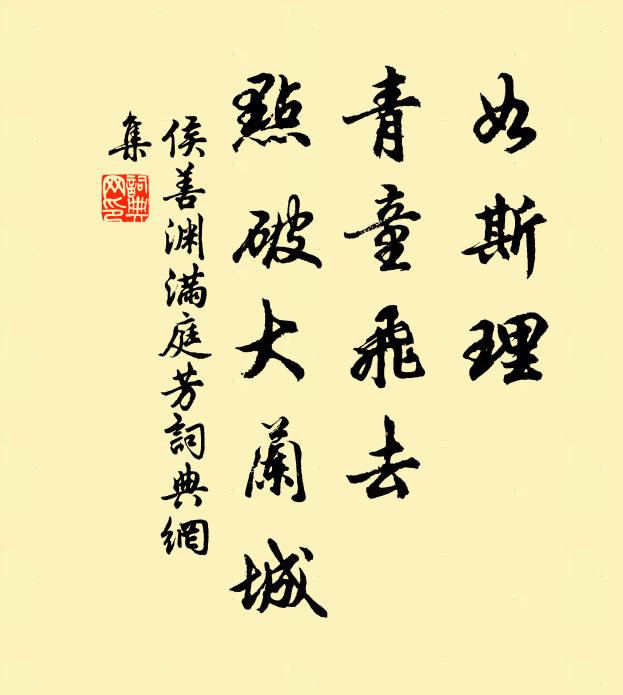 如斯理
青童飛去
點破大蘭城
侯善渊满庭芳詞典網
集
詞典網印